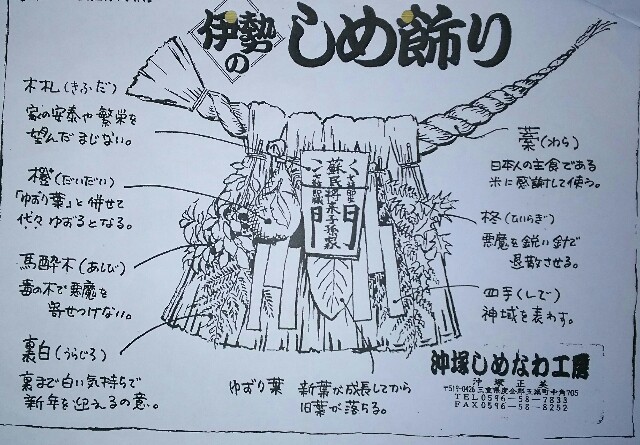 伊勢の
しめ飾り
木札(きふだ)
家の安泰や繁栄を
望んだまじない。
橙(だいだい)
「ゆずり葉」と併せて
代々ゆずるとなる。
馬酔木(あしび)
毒の木で悪魔を
寄せつけない。
裏白(うらじろ)
裏まで白い気持ちで
新年を迎えるの意。
蘇民将来子孫家
ゆずり葉
新葉が成長してから
旧葉が落ちる。
藁(わら)
日本人の主食である
米に感謝して使う。
柊(ひいらぎ)
悪魔を鋭い針で
退散させる。
四手(しで)
神域を表わす。
沖塚しめなわ工房
沖塚正美
TEL0596-58-7833
FAX0596-58-8252